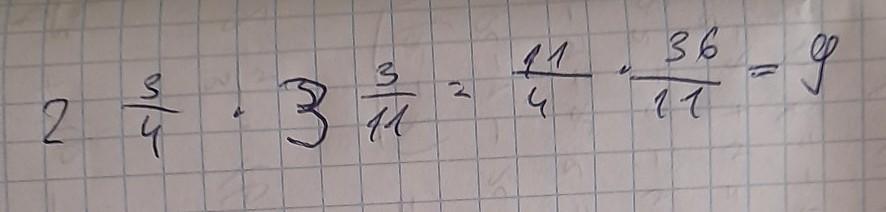 2 3/4 · 3 3/11 = 11/4 · 36/11 = 9